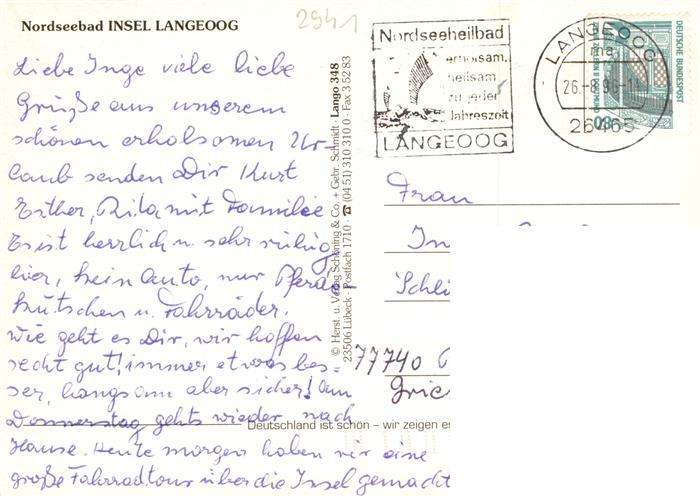 Nordseebad INSEL LANGEOOG
2941
Liebe Inge viele liebe
Grüße aus unserem
schönen erholsamen Ur-
laub senden Dir Kurt
Esther, Rita mit Familie
Es ist herrlich u. sehr ruhig
hier, kein Auto, nur Pferde
kutschen u. Fahrräder.
Wie geht es Dir, wir hoffen
recht gut! immer etwas bes-
ser, langsam aber sicher! Am
Donnerstag gehts wieder nach
Hause. Heute morgen haben wir eine
große Fahrradtour über die Insel gemacht
© Herst. u. Verlag Schöning & Co. + Gebr. Schmidt · Lango 348
23506 Lübeck · Postfach 1710 · ☎ (04 51) 310 310 0 · Fax 3 52 83
Nordseeheilbad
erholsam,
heilsam
zu jeder
Jahreszeit
LANGEOOG
LANGEOOG
26.-8.96.-
26465
DEUTSCHE BUNDESPOST
80
Frau
In
Schli
77740
Grie
Deutschland ist schön – wir zeigen es